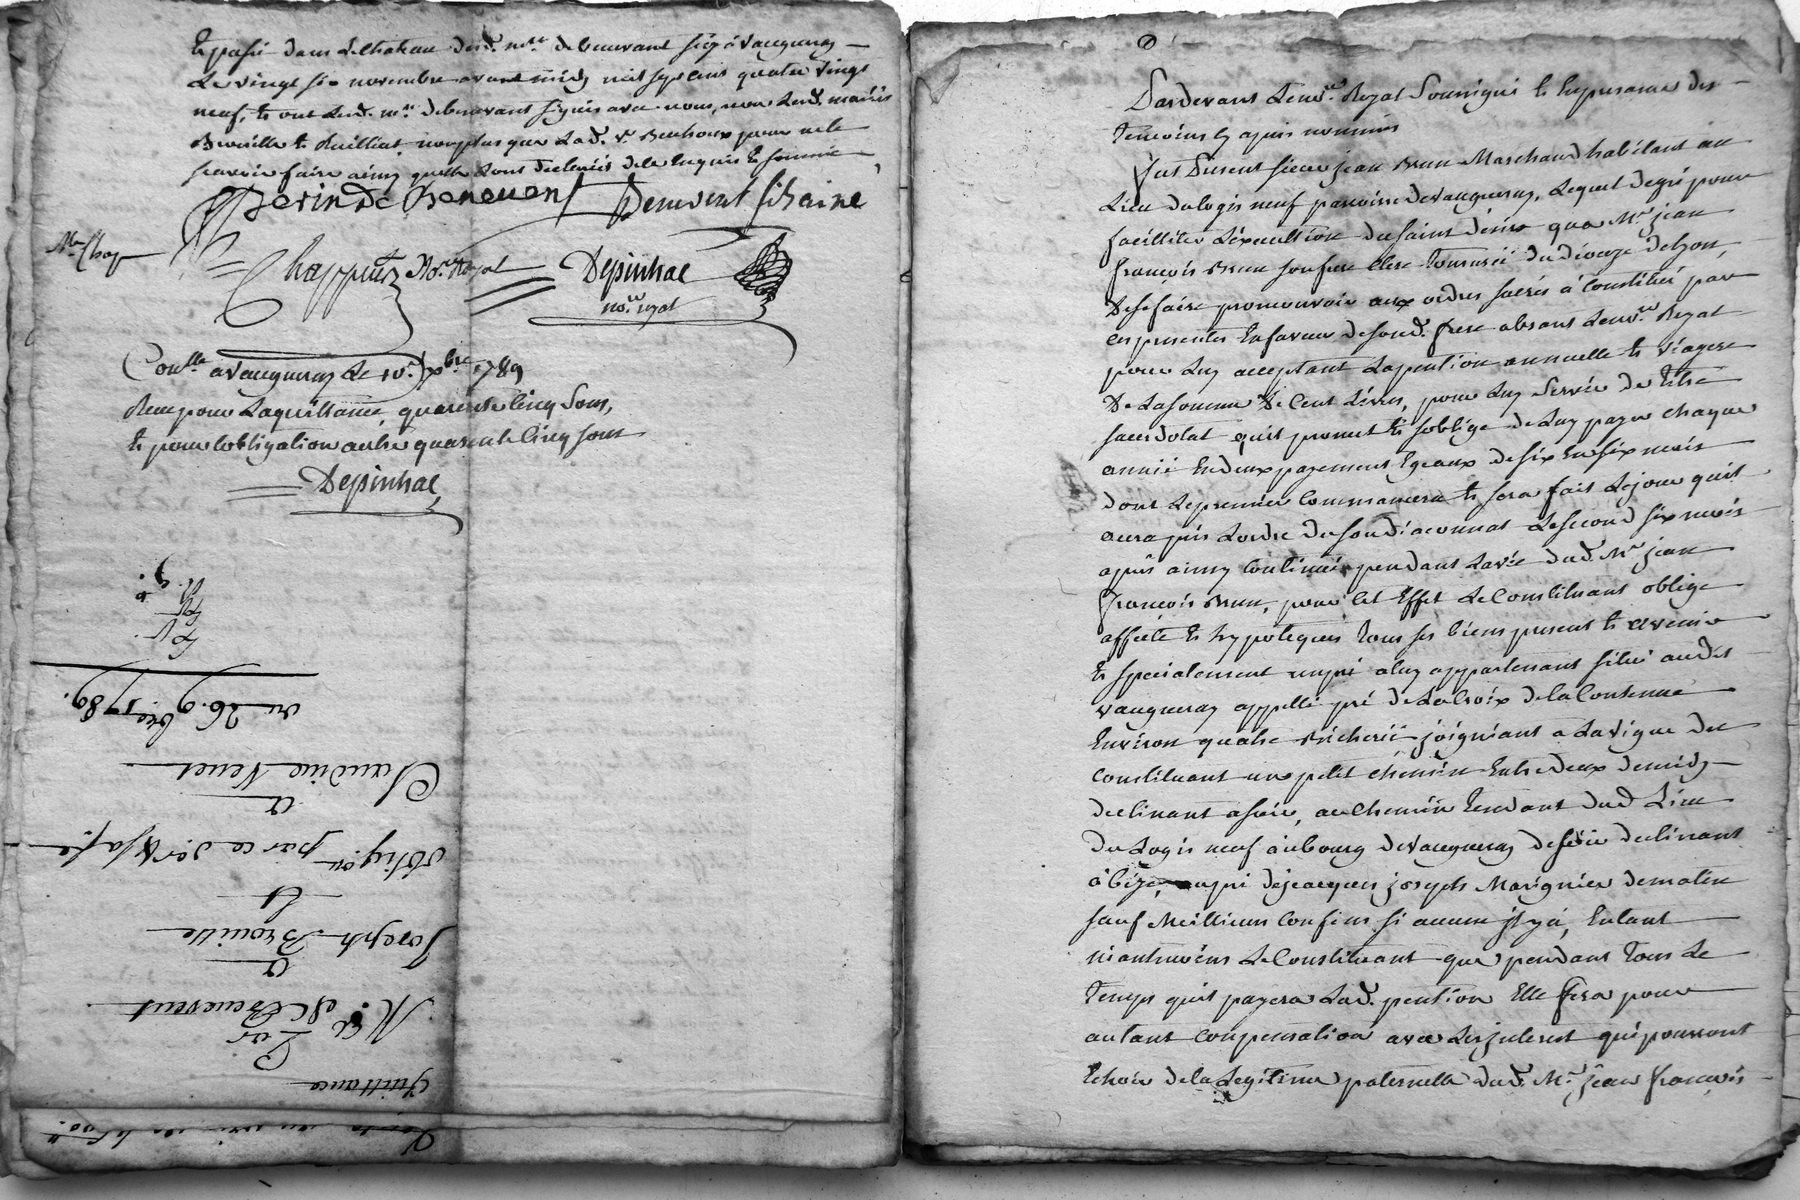 et passé dans le chateau dud. mre. de benevant sis à Vaugneray
Le vingt six novembre avant midy mil sept cent quatre vingt
neuf, et ont led. mr. debenevant signés avec nous, non lesd. mariés
Brouille et Ruilliat, non plus que lad. ve. pour ne le
scavoir faire ainsy quils ont declarés de le enquis et sommés
Devin de Benevent Benevent fils aîné
Mr. Chap
Chappuis Nore. Royal Depinhac
nore. royal
Conlle. a Vaugneray le 10e. Xbre. 1789
Reçu pour la quittance, quarente cinq sous,
et pour lobligation autre quarente cinq sous
Depinhac
du 26. 9bre. 1789.
Claudine Venet
a
obligon. par ce der
Et
Joseph Brouille
a
Mre. de Benevent
Par
Quittance
Pardevant le nore. Royal Soussigné et en presence des
temoins cy après nommés
fut Présent sieur jean Brun Marchand habitant au
Lieu du logis neuf paroisse de Vaugneray, Lequel de gré pour
faciliter L'éxecution du saint désire que Mr. jean
françois Brun son frere Clerc tonsuré du diocèze de Lyon,
De se faire promouvoir aux ordres sacrés a Constitué par
ces presentes En faveur de sond. frere absant Le nore. Royal
pour Luy acceptant La pention annuelle et viagere
De La somme De Cent Livres, pour Luy Servir de titre
sacerdotal quil promet et soblige de Luy payer chaque
année En deux payemens Egeaux de six En six mois
dont Le premier Commancera et sera fait Le jour quil
aura pris Lordre du soudiaconnat Le second six mois
après ainsy Continué pendant La vie dud. Mr. jean
françois Brun, pour Cet Effet Le Constituant oblige
affecte et hypoteques tous ses biens present et avenir
et specialement un pré a luy appartenant situé aud.
Vaugneray appellé pré de La Croix de la Contenue
Environ quatre Bicherées joigniant a La vigne du
Constituant un petit chemin Entre deux de midy
declinant a soir, au Chemin tendant dud Lieu
Du Logis neuf au bourg de Vaugneray de soir declinant
à bize, un pré de jacques joseph Marignier de matin
sauf Meillieurs Confins si aucun il y à, Entant
niantmoins Le Constituant que pendant tous Le
temps quil payera Lad. pention Elle sera pour
autant Conpensation avec Les jnterest qui pourront
Echoir de la Legitime paternelle dud. Mr. jean françois